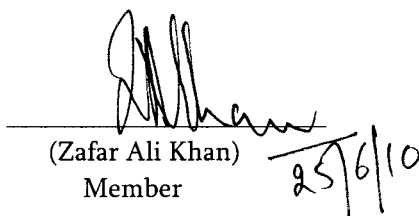 (Zafar Ali Khan)
Member
25/6/10